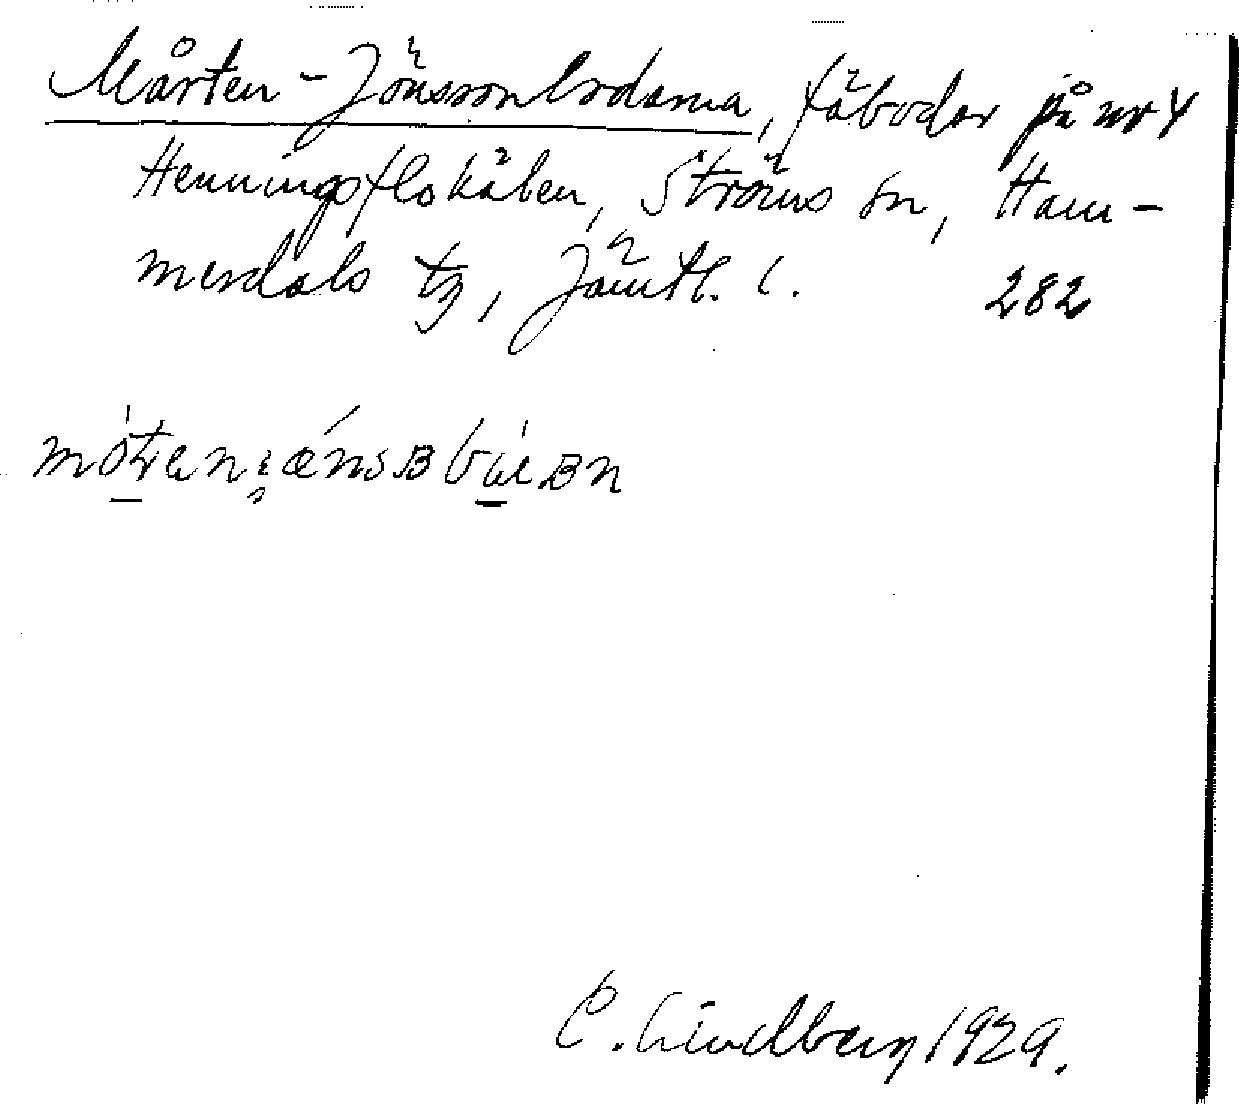 Mårten-Jönssonbodarna, fäbodar på nr 4
Henningsflokåben, Ströms sn, Ham-
merdals tg, Jämtl. l. 282
C. Lindberg 1929.